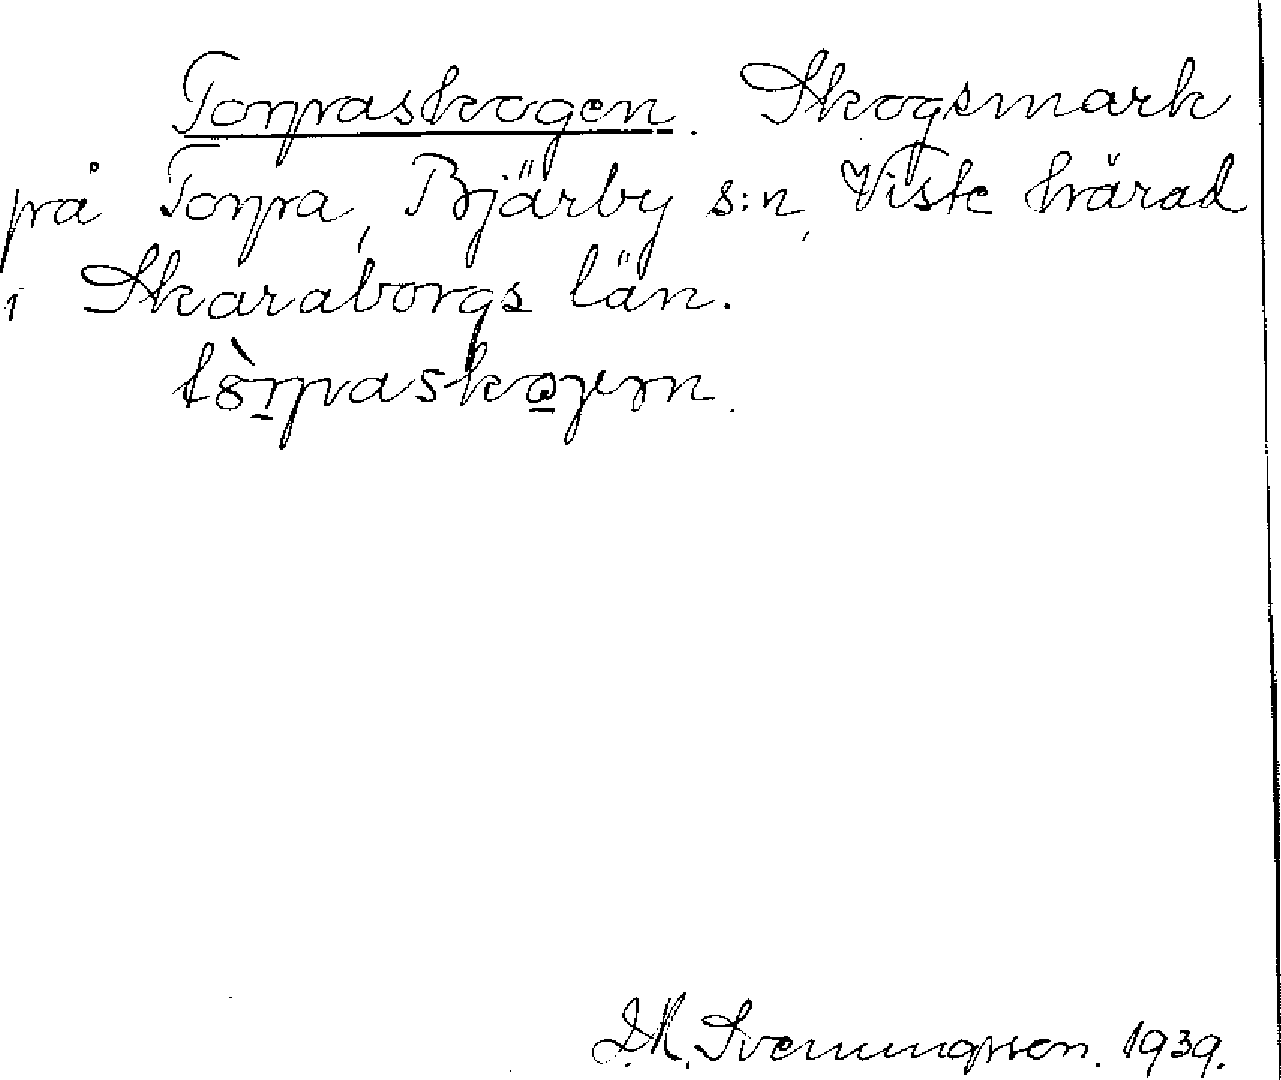 Torpaskogen. Skogsmark
på Torpa, Bjärby s:n, Viste härad
i Skaraborgs län.
D.A. Svenningsson. 1939.